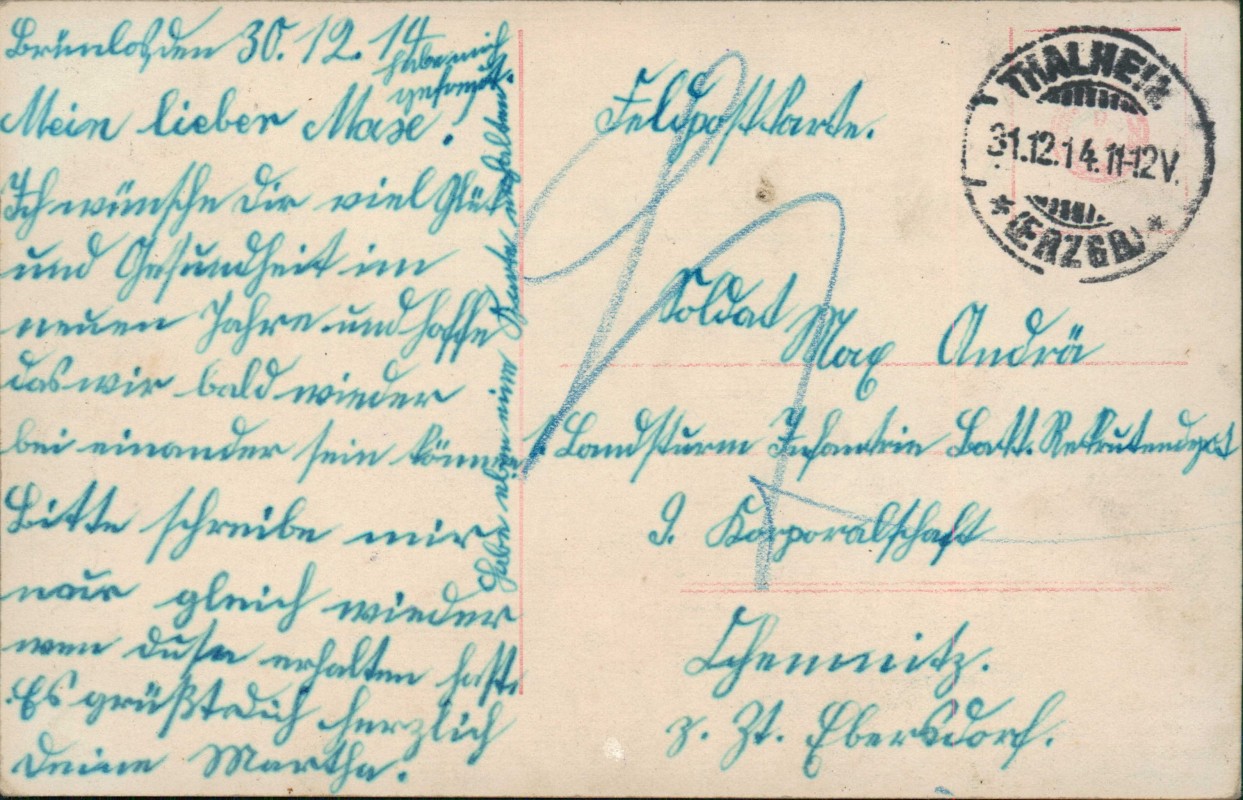 Brünlos, den 30.12.14
Mein lieber Maxe!
Ich wünsche Dir viel Glück
und Gesundheit im
neuen Jahre und hoffe
das wir bald wieder
bei einander sein können
Bitte schreibe mir
nur gleich wieder
wen du sie erhalten hast.
Es grüßt dich herzlich
Deine Martha.
Habe eben eine Karte erhalten
habe mich
gefreut.
Feldpostkarte.
Soldat
Max Andrä
1. Landsturm Infantrie Batt. Rekrutendepot
9. Korporalschaft
Chemnitz.
z. Zt. Ebersdorf.
THALHEIM
31.12.14.11-12V.
* (ERZGB.) *